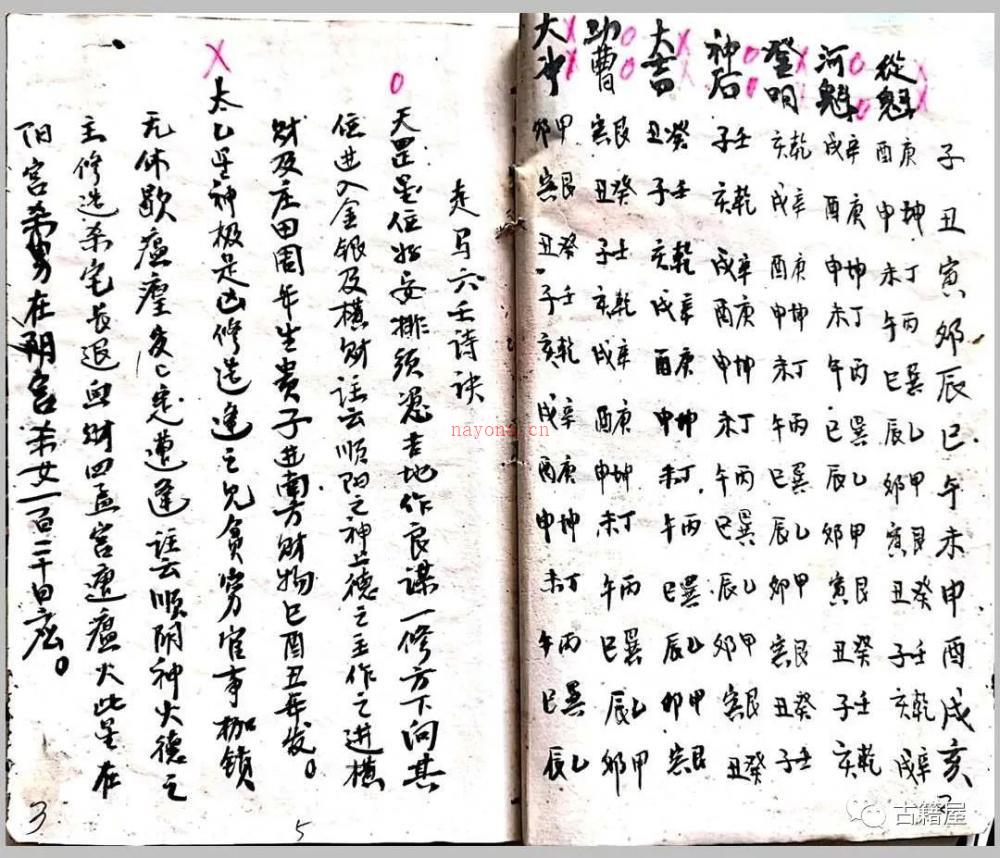 子丑寅卯辰巳午未申酉戌亥
從魁 庚酉 坤申 丁未 丙午 巽巳 乙辰 甲卯 艮寅 癸丑 壬子 乾亥 辛戌
河魁 辛戌 庚酉 坤申 丁未 丙午 巽巳 乙辰 甲卯 艮寅 癸丑 壬子 乾亥
登明 乾亥 辛戌 庚酉 坤申 丁未 丙午 巽巳 乙辰 甲卯 艮寅 癸丑 壬子
神后 壬子 乾亥 辛戌 庚酉 坤申 丁未 丙午 巽巳 乙辰 甲卯 艮寅 癸丑
大吉 癸丑 壬子 乾亥 辛戌 庚酉 坤申 丁未 丙午 巽巳 乙辰 甲卯 艮寅
功曹 艮寅 癸丑 壬子 乾亥 辛戌 庚酉 坤申 丁未 丙午 巽巳 乙辰 甲卯
大冲 甲卯 艮寅 癸丑 壬子 乾亥 辛戌 庚酉 坤申 丁未 丙午 巽巳 乙辰
走马六壬诗诀
天罡星位好安排须凭吉地作良谋一修方下问其
位进入金银及横财註云顺阳之神土德之主作之进横
财及庄田周年生贵子进南方财物巳酉丑年发。
太乙星神极是凶修造逢之见贫穷官事枷锁
无休歇瘟瘴定遭逢註云顺阴神火德之
主修造杀宅长退血财四孟宫遭瘟火此星在
阳宫杀男在阴宫杀女一百二十日应。
3
5
nayona.cn
古籍屋